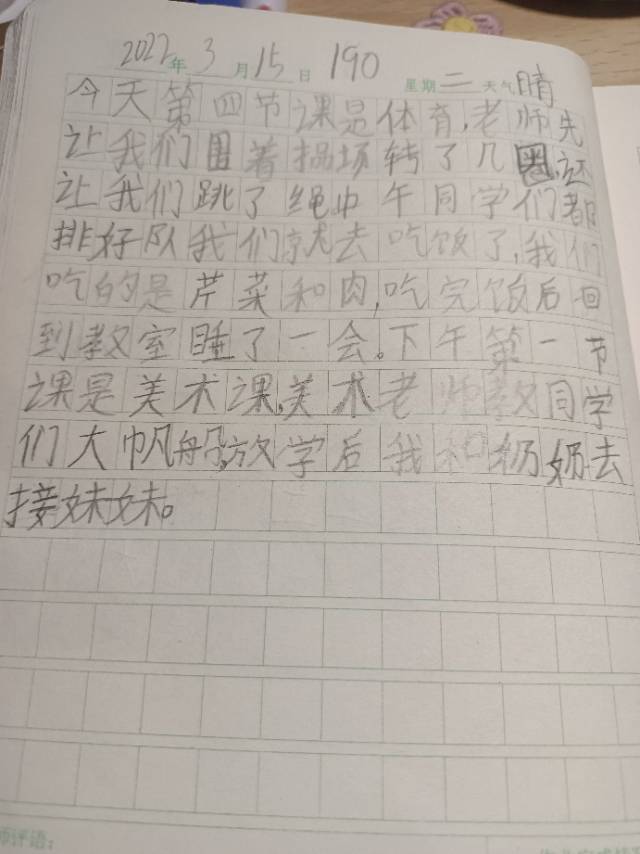 2022年3月15日 190 星期二天气晴
今天第四节课是体育,老师先
让我们围着操场转了几圈,还
让我们跳了绳中午同学们都
排好队我们就去吃饭了,我们
吃的是芹菜和肉,吃完饭后回
到教室睡了一会。下午第一节
课是美术课,美术老师教同学
们大帆船,放学后我和奶奶去
接妹妹。
师评语: